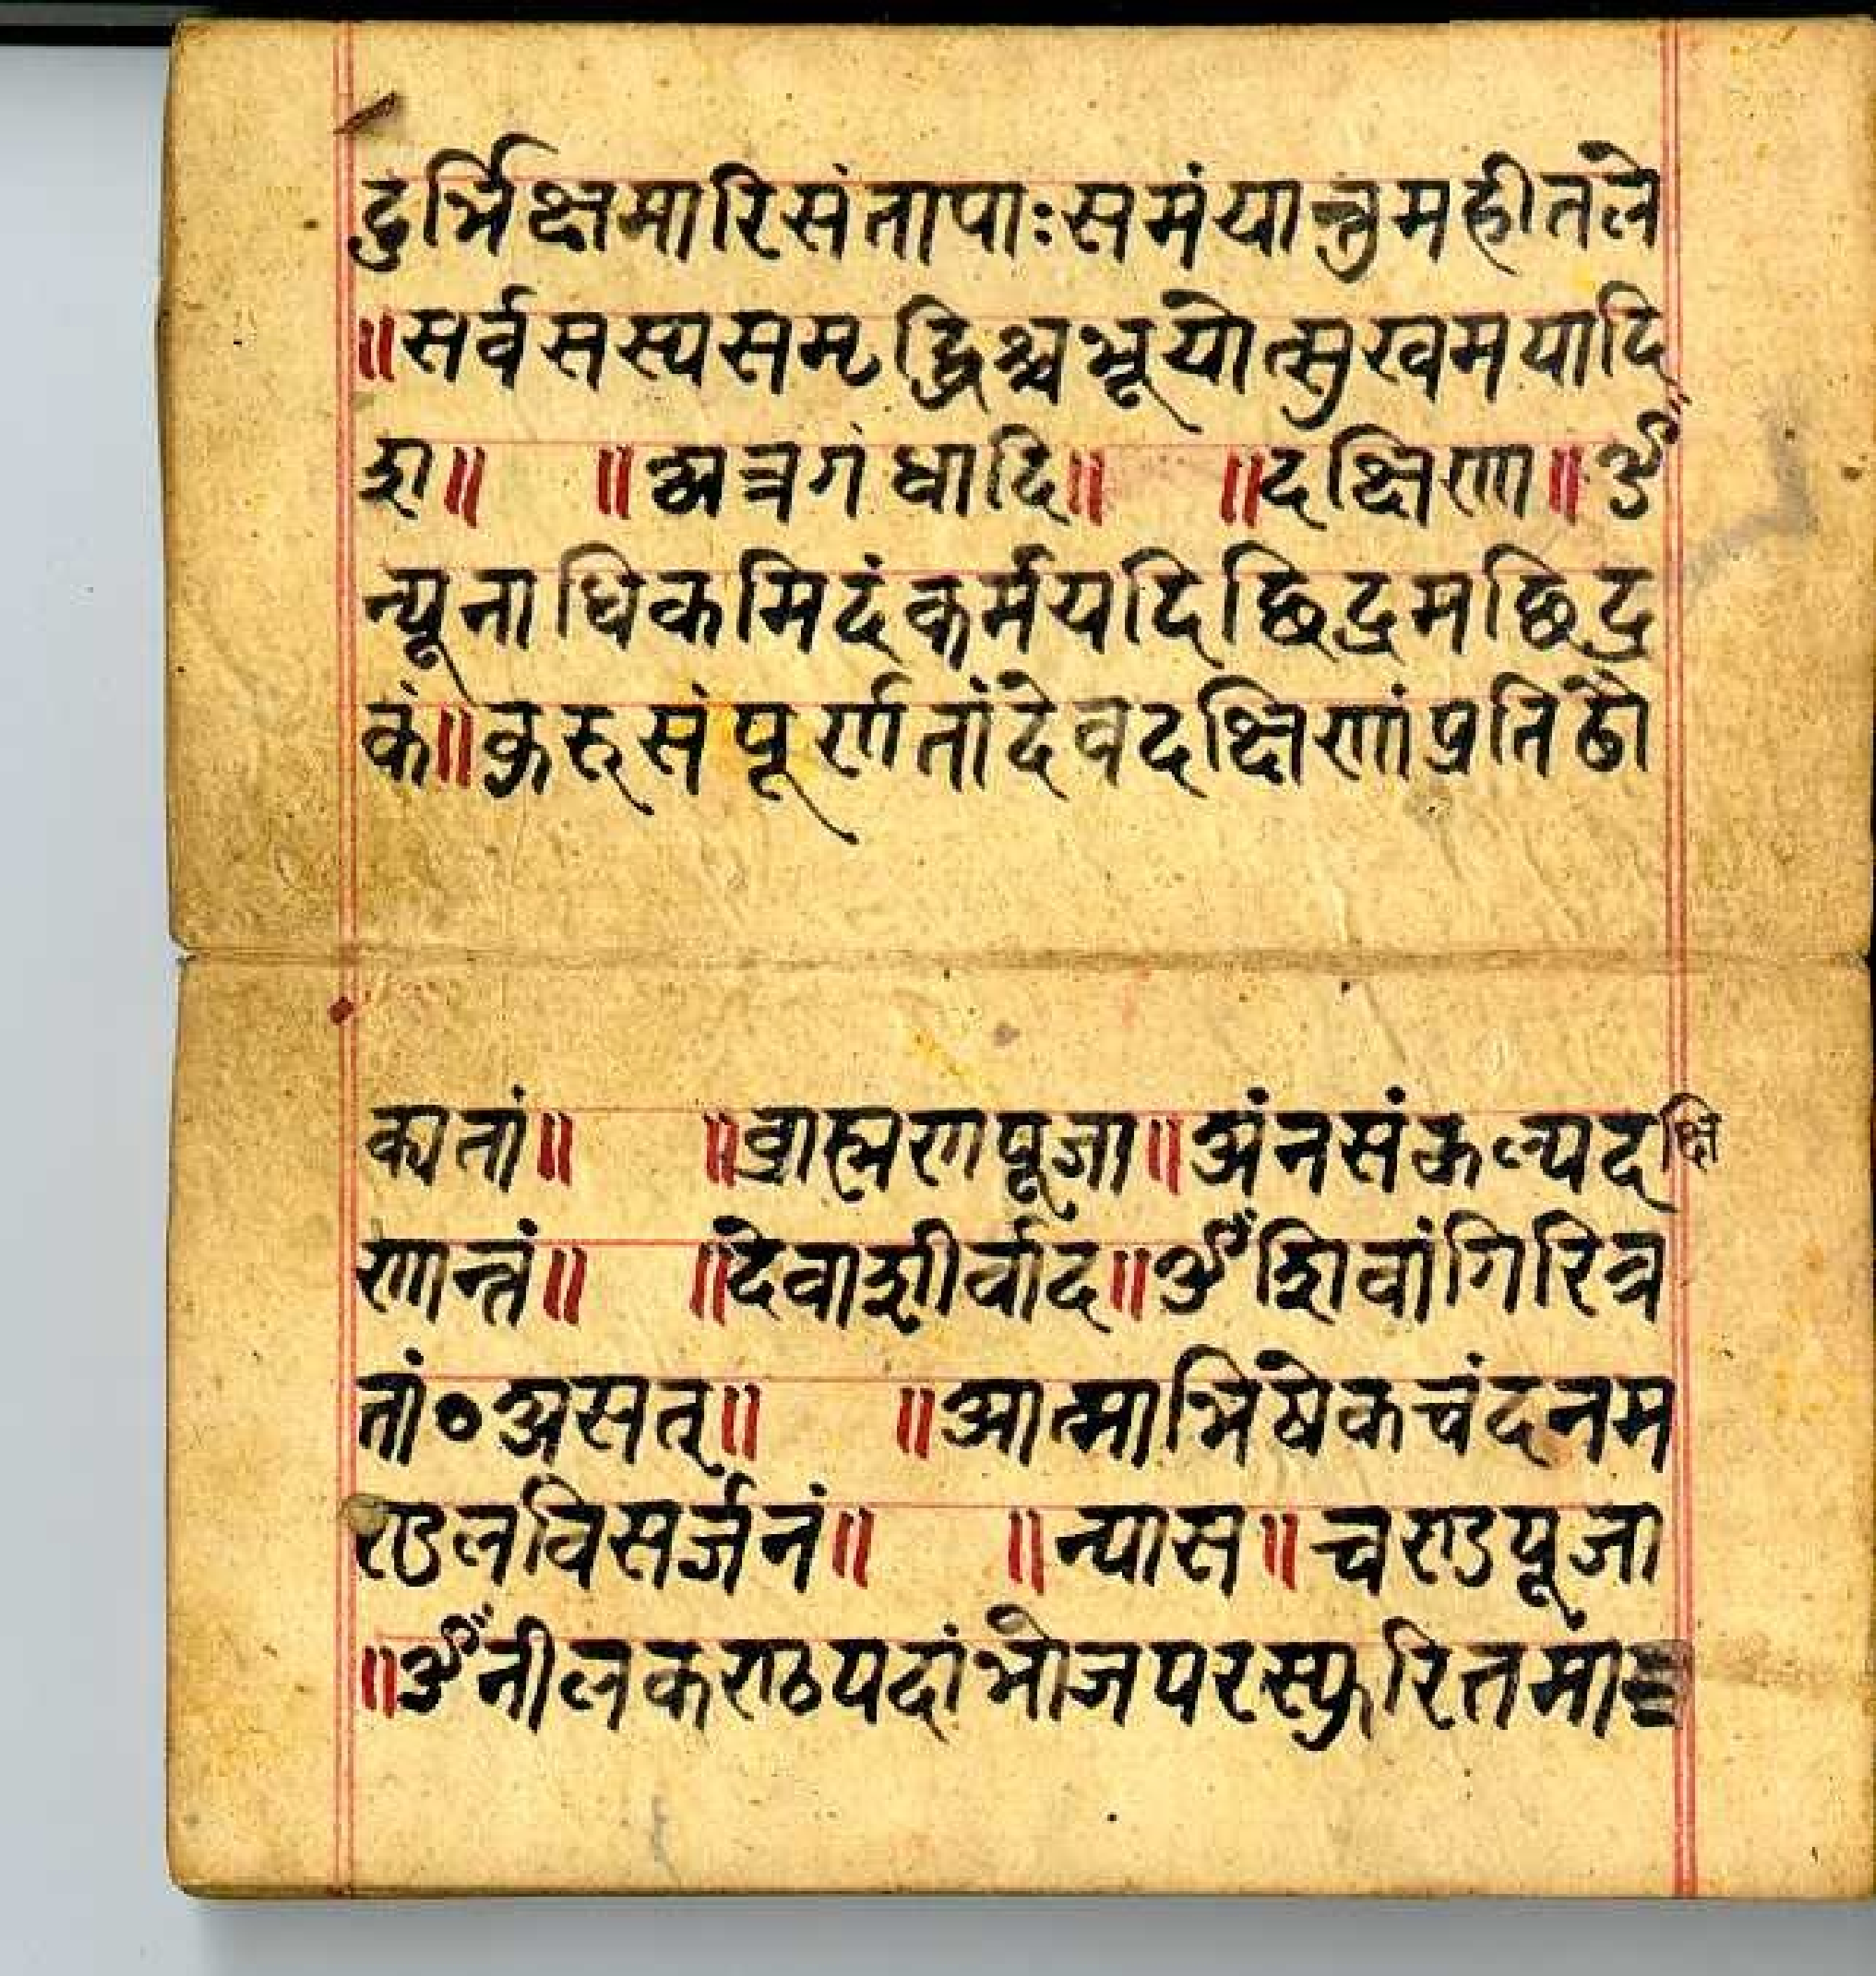 दुर्भिक्षमारिसंतापाःसमंयान्तुमहीतले
॥सर्वसस्यसमृद्धिश्चभूयोत्सुखमयादि
श॥ ॥अत्रगंधादि॥ ॥दक्षिणा॥ॐ
न्यूनाधिकमिदंकर्मयदिछिद्रमछिद्र
कं॥कुरुसंपूर्णतांदेवदक्षिणांप्रतिढौ
क्यतां॥ ॥ब्राह्मणपूजा॥अंनसंकल्पदक्षि
णान्तं॥ ॥देवाशीर्वाद॥ॐशिवांगिरित्र
तां०असत्॥ ॥आत्माभिषेकचंदनम
ण्डलविसर्जनं॥ ॥न्यास॥चण्डपूजा
॥ॐनीलकण्ठपदांभोजपरस्फुरितमां